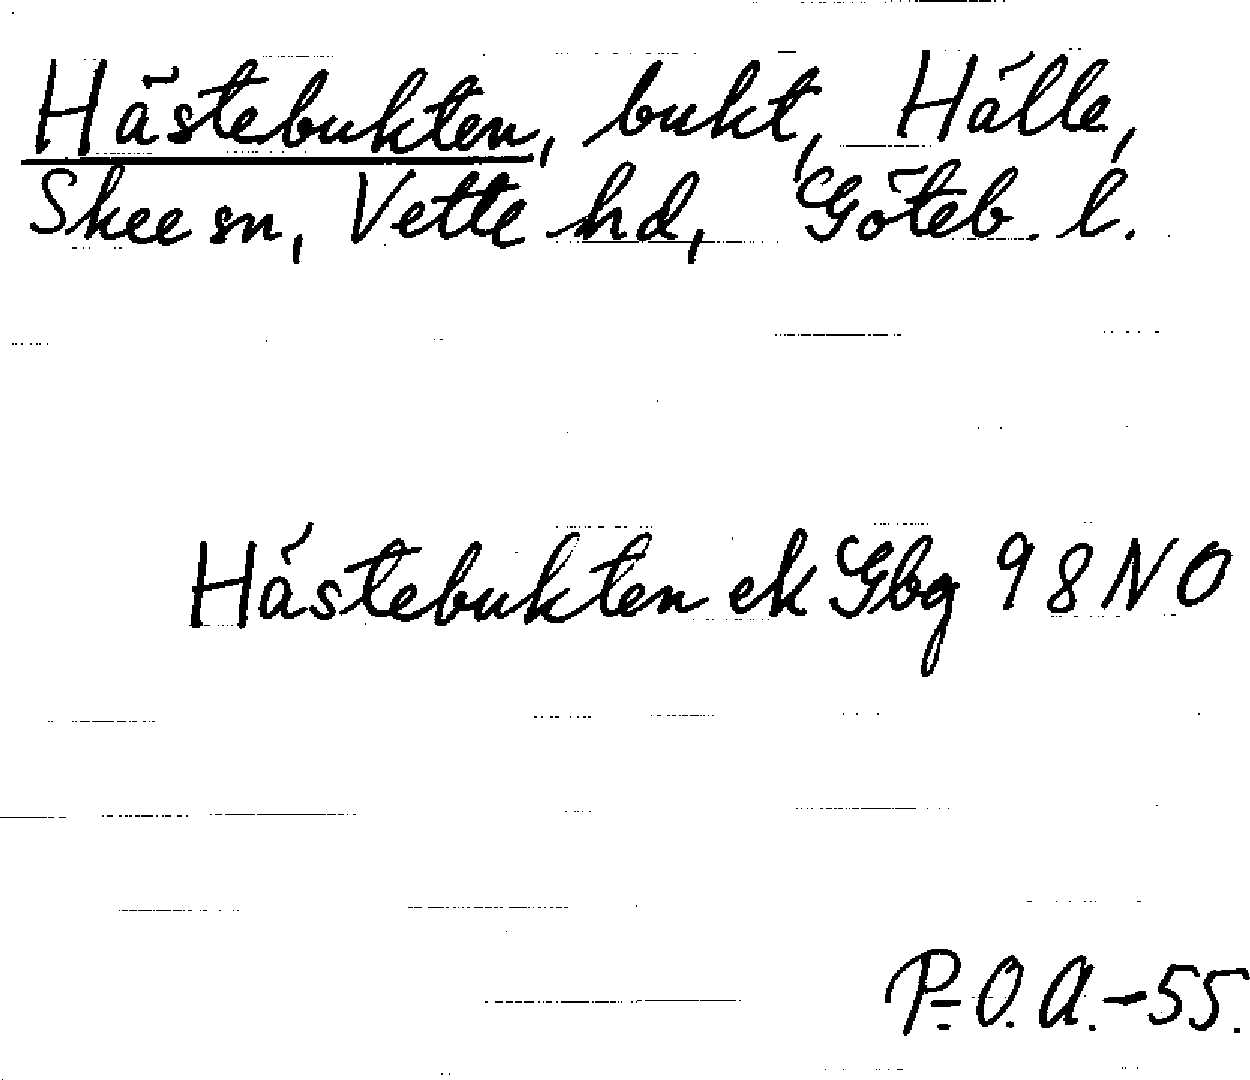 Hästebukten, bukt, Hälle,
Skee sn, Vette hd, Göteb. l.
Hästebukten ek Gbg 98 NO
P.-O. A. -55.